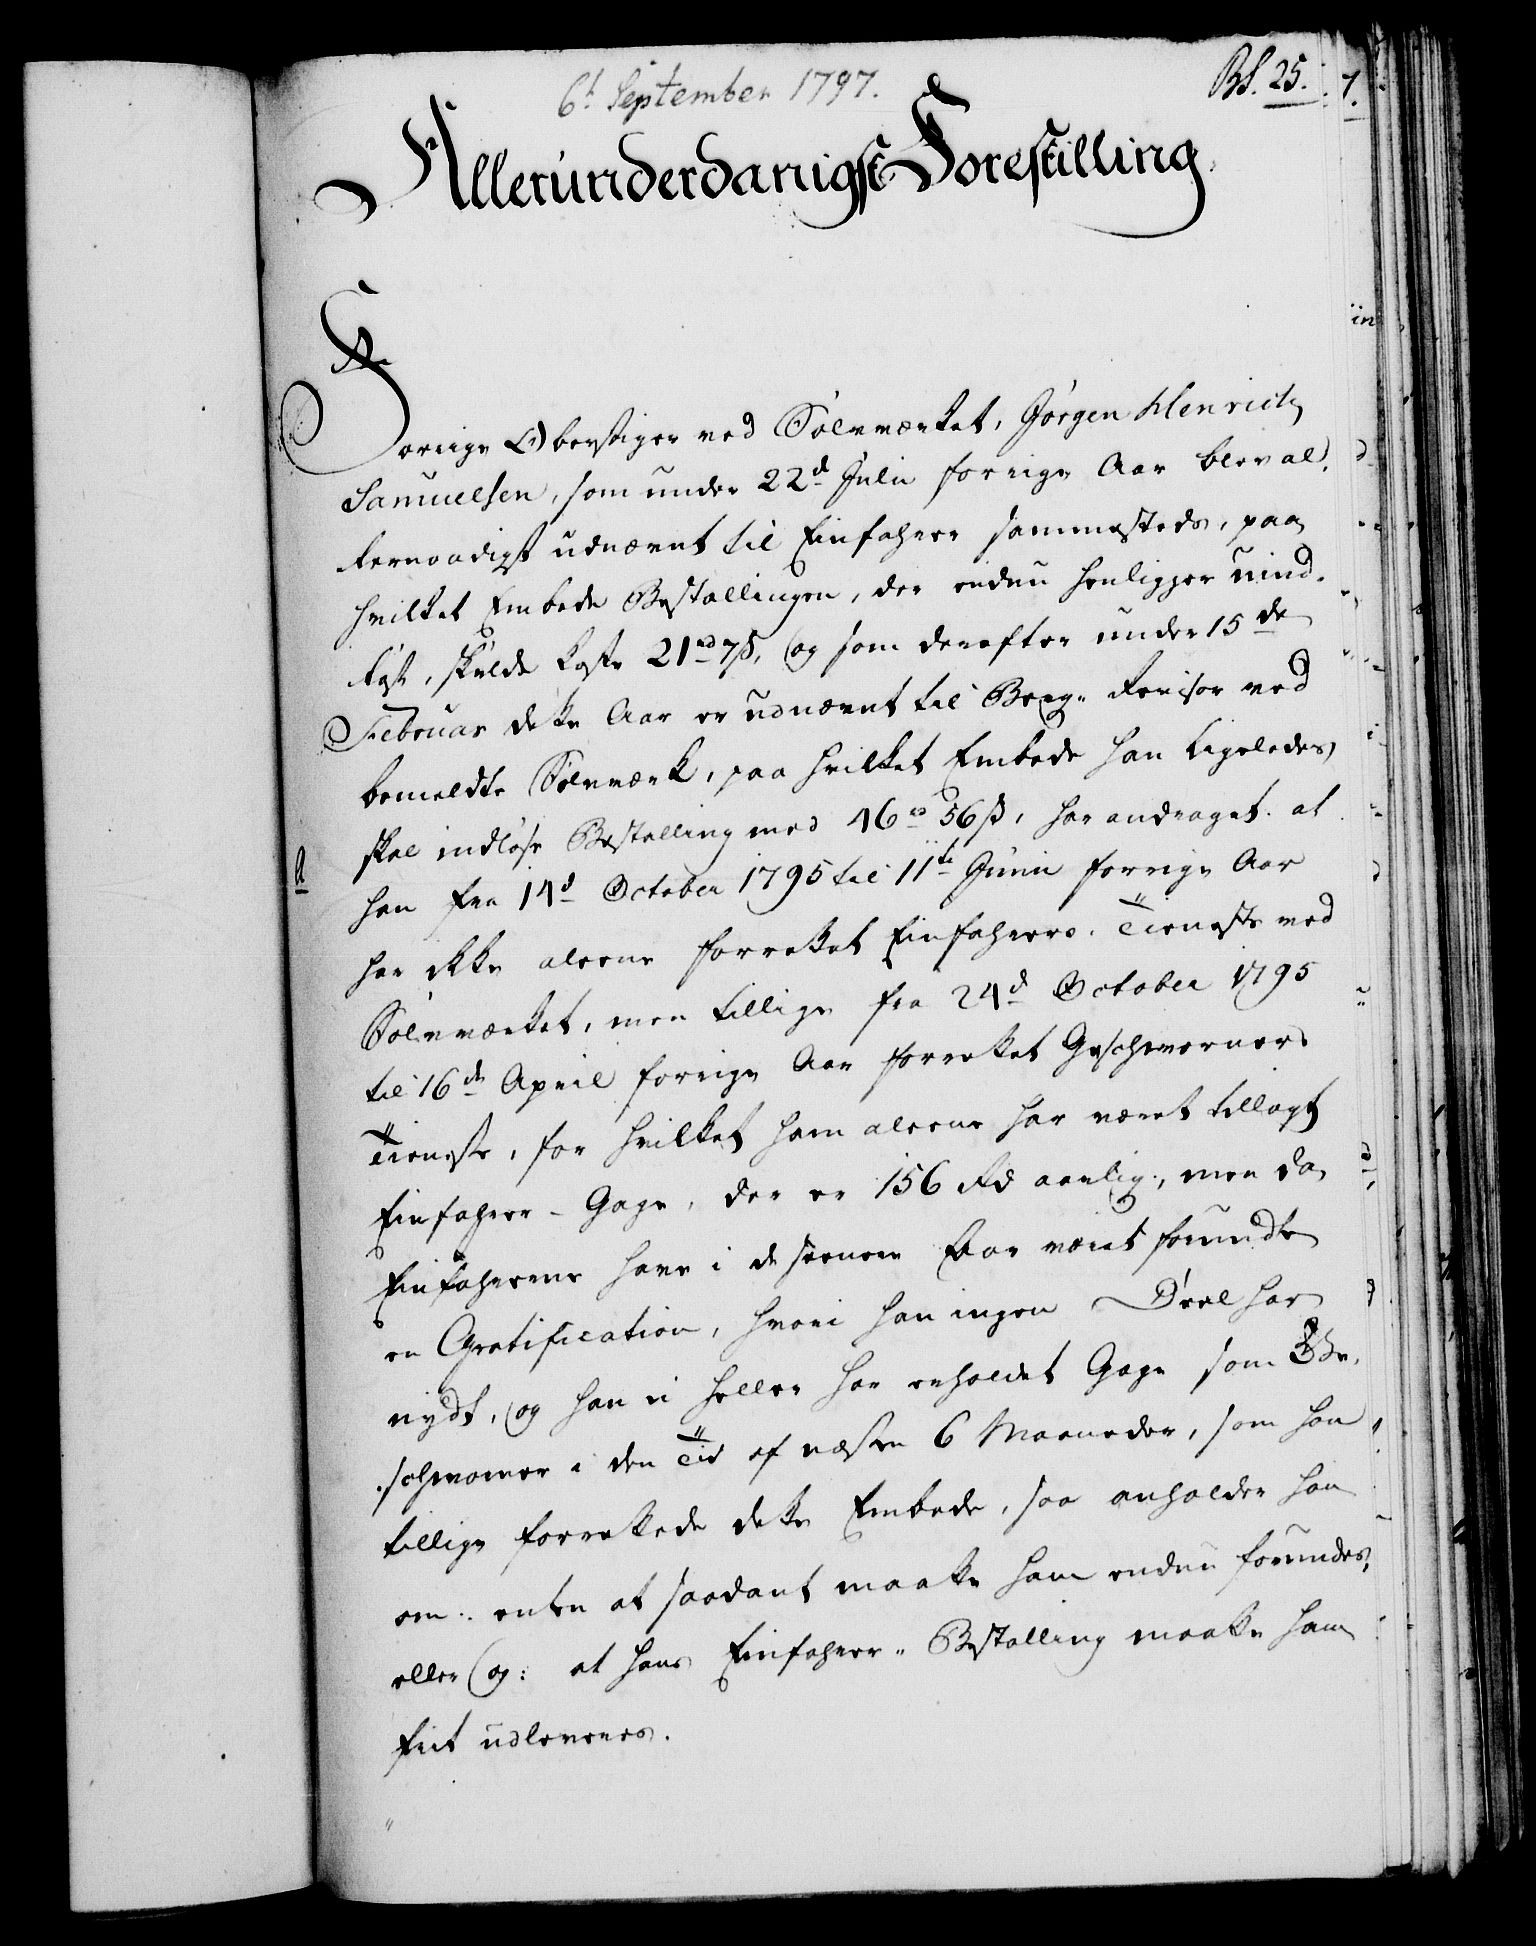 6t September 1797.
BS. 25.
Allerunderdanigst Forestilling
Forrige Oberstiger ved Sølvværket, Jørgen Henrich
Samuelsen, som under 22d Julii forrige Aar blev al-
lernaadigst udnævnt til Einfahrer sammesteds, paa
hvilket Embede Bestallingen, der endnu henligger uind-
løst, skulde koste 21rd 7ß, og som derefter under 15de
Februar dette Aar er udnævnt til Berg-Revisor ved
bemeldte Sølvværk, paa hvilket Embede han ligeledes
skal indløse Bestalling med 46rd 56ß, har andraget: at
han fra 14d October 1795 til 11te Junii forrige Aar
har ikke aleene forrettet Einfahrers Tieneste ved
Sølvværket, men tillige fra 24d October 1795
til 16de April forrige Aar forrettet Geschworners
Tieneste, for hvilket ham aleene har været tillagt
Einfahrer-Gage, der er 156 Rd aarlig, men da
Einfahrerne have i de seenere Aar været forundte
en Gratification, hvori han ingen Deel har
nydt, og han ei heller har erholdet Gage som Ge-
schworner i den Tid af næsten 6 Maaneder, som han
tillige forrettede dette Embede, saa anholder han
om: enten at saadant maatte ham endnu forundes,
eller og: at hans Einfahrer-Bestalling maatte ham
friit udleveres.